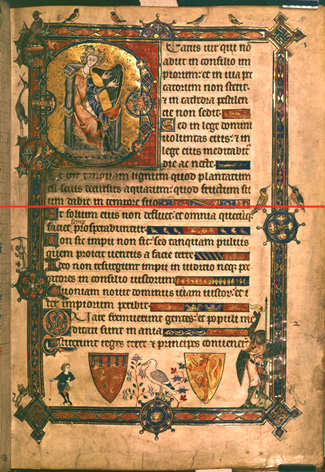 Beatus uir qui nõ
abiit in consilio im
piorum: et in uia pec
catorum non stetit:
& in cathedra pestilen
cie non sedit.
Sed in lege domini
uoluntas eius: et in
lege eius meditabitur
die ac nocte.
tanquam lignum quod plantatum
est secus decursus aquarum: quod fructum su
um dabit in tempore suo
Et folium eius non defluet: et omnia
faciet prosperabuntur.
Non sic impii non sic: sed tanquam puluis
quem proicit uentus a facie terre
Ideo non resurgunt impii in iudicio: neqꝫ pec
catores in consilio iustorum
Quoniam nouit dominus uiam iustorum: et i
ter impiorum peribit
Quare fremuerunt gentes: et populi me
ditati sunt inania
Astiterunt reges terre et principes